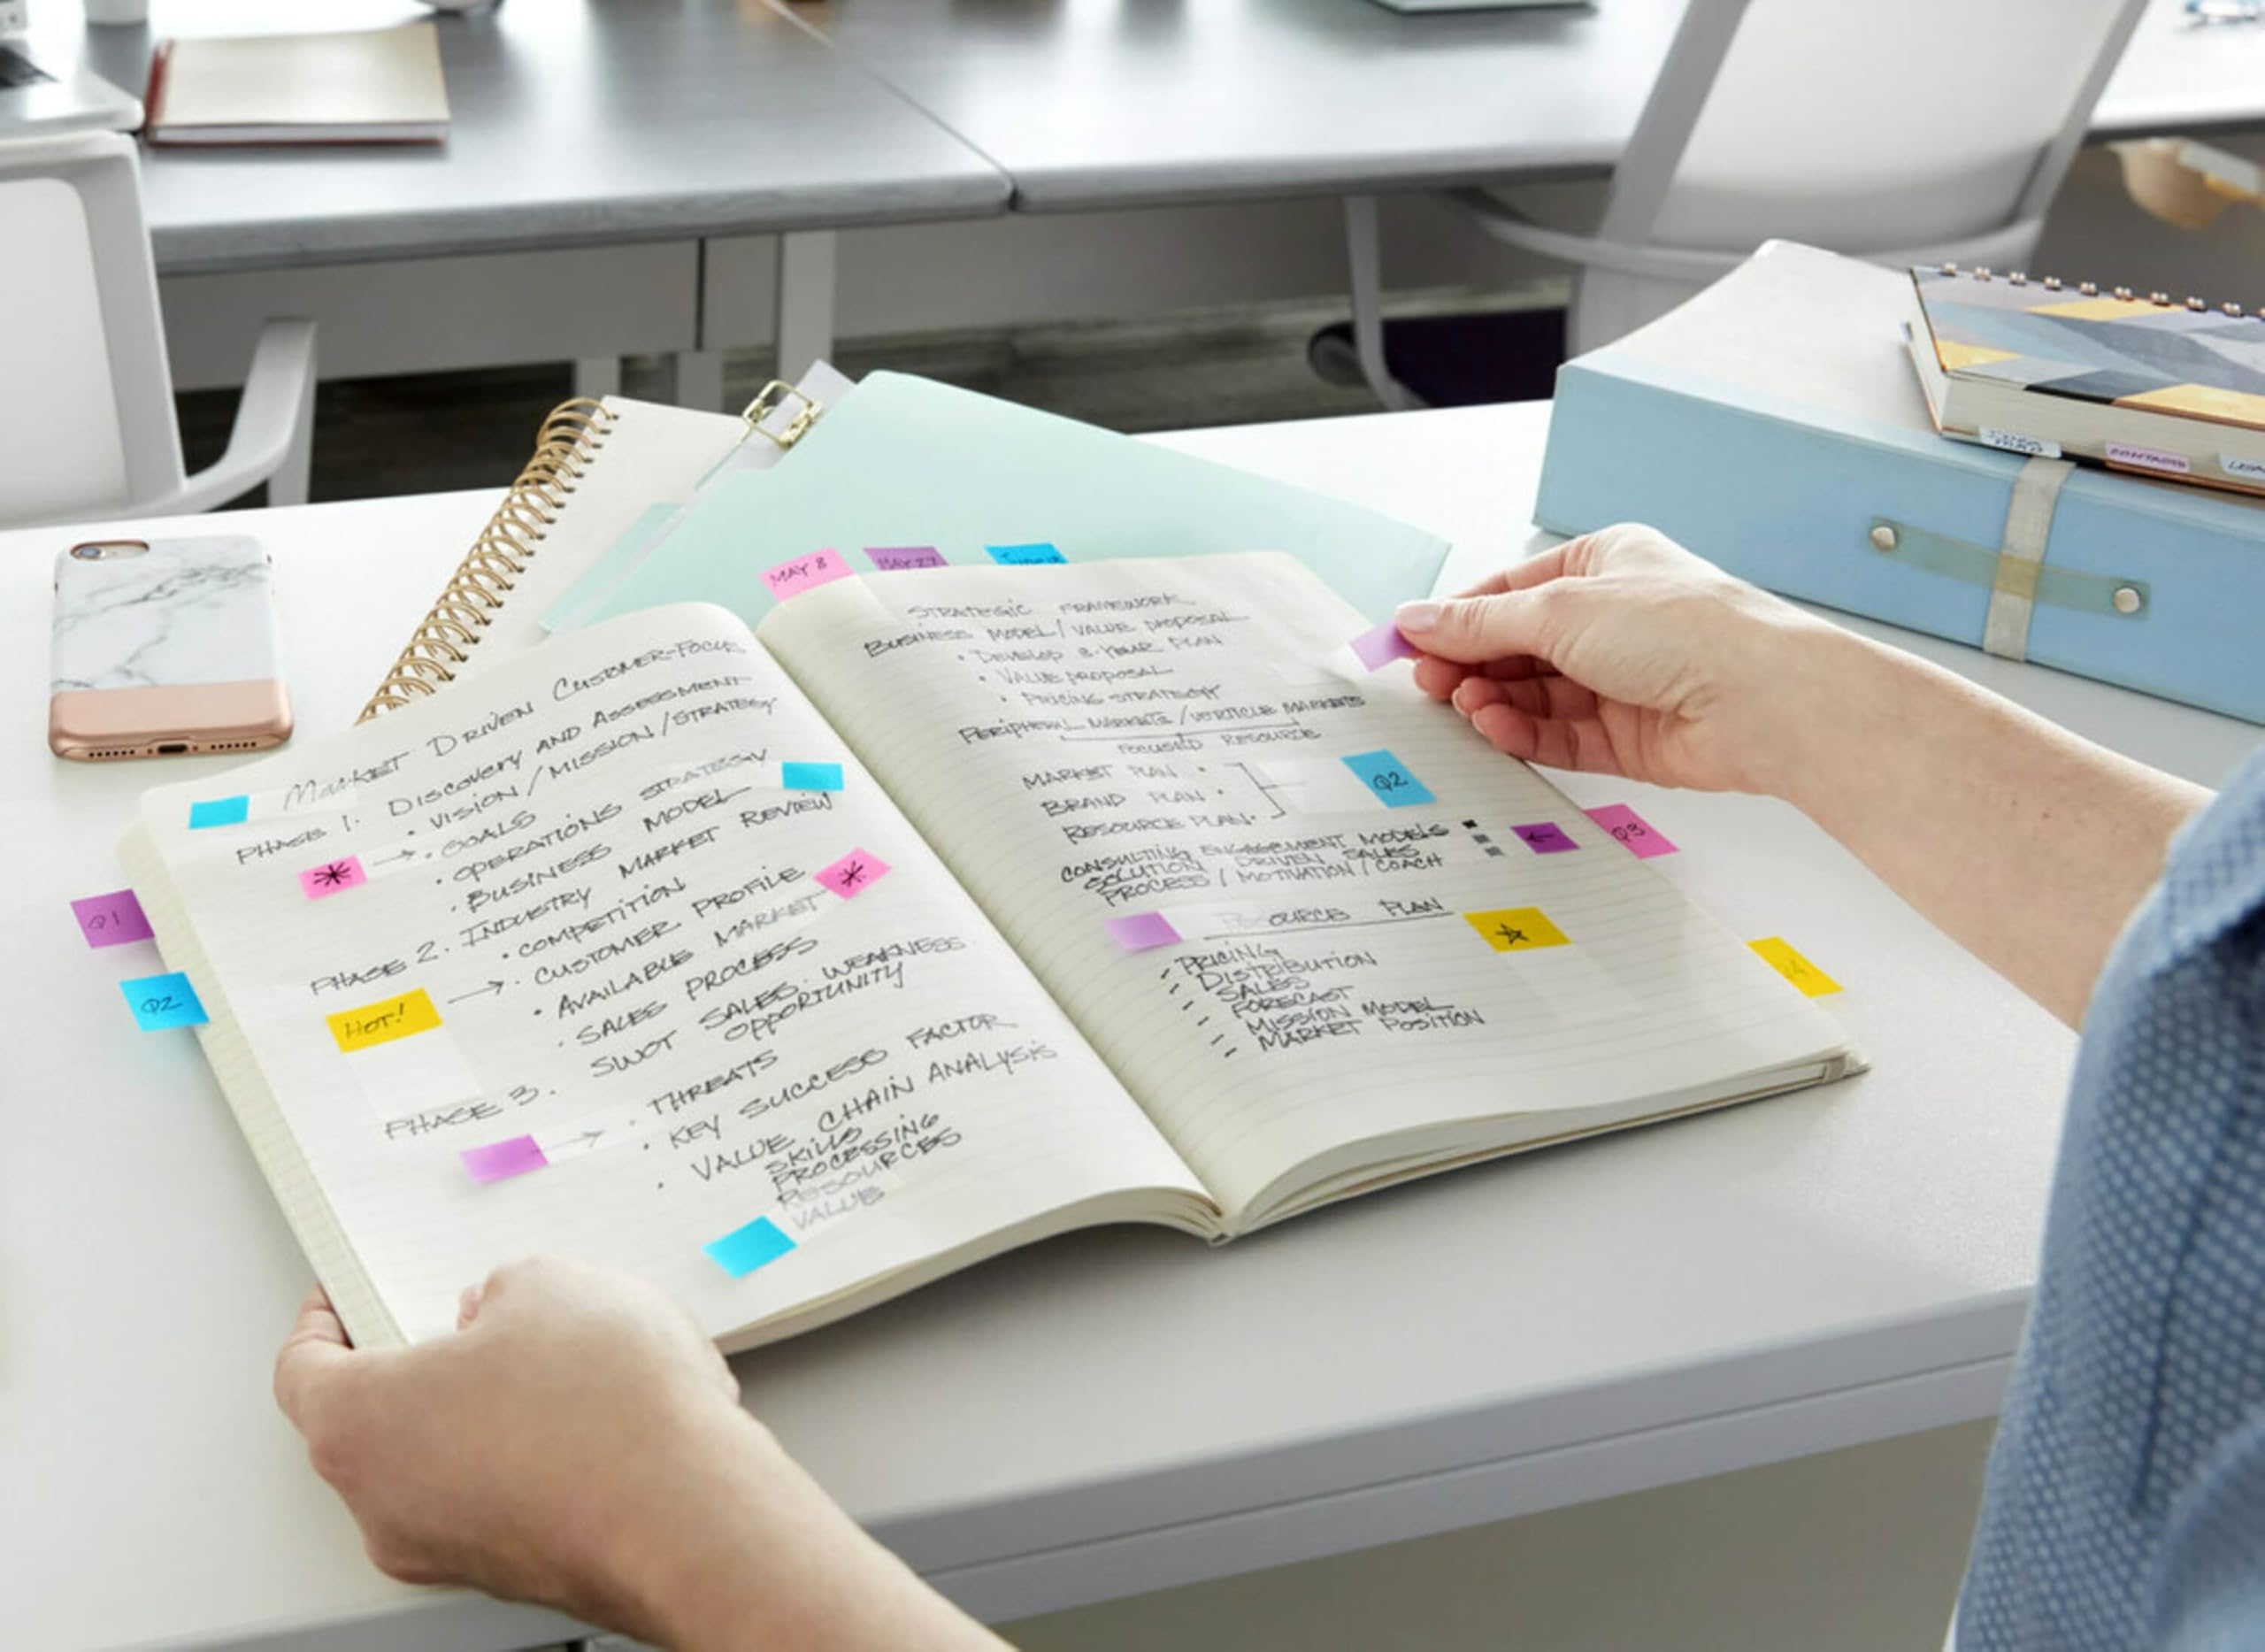 MAY 8
MAY 27
Q1
Q2
MARKET DRIVEN CUSTOMER-FOCUS
PHASE 1. DISCOVERY AND ASSESSMENT
• VISION / MISSION / STRATEGY
* → • GOALS
• OPERATIONS STRATEGY
• BUSINESS MODEL
PHASE 2. INDUSTRY MARKET REVIEW
• COMPETITION
HOT! → • CUSTOMER PROFILE *
• AVAILABLE MARKET
• SALES PROCESS
PHASE 3. SWOT SALES. WEAKNESS
OPPORTUNITY
→ • THREATS
• KEY SUCCESS FACTOR
• VALUE CHAIN ANALYSIS
SKILLS
PROCESSING
RESOURCES
VALUE
STRATEGIC FRAMEWORK
BUSINESS MODEL / VALUE PROPOSAL
• DEVELOP 3-YEAR PLAN
• VALUE PROPOSAL
• PRICING STRATEGY
PERIPHERAL MARKETS / VERTICLE MARKETS
FOCUSED RESOURCE
MARKET PLAN •
BRAND PLAN •
RESOURCE PLAN •
Q2
CONSULTING ENGAGEMENT MODELS
SOLUTION DRIVEN SALES
PROCESS / MOTIVATION / COACH
←
Q3
RESOURCE PLAN
☆
PRICING
DISTRIBUTION
SALES
FORECAST
MISSION MODEL
MARKET POSITION
CONTACTS